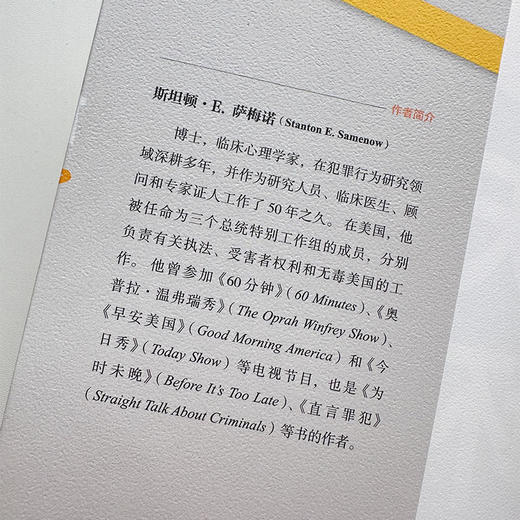 作者简介
斯坦顿·E. 萨梅诺(Stanton E. Samenow)
博士，临床心理学家，在犯罪行为研究领
域深耕多年，并作为研究人员、临床医生、顾
问和专家证人工作了 50 年之久。在美国，他
被任命为三个总统特别工作组的成员，分别
负责有关执法、受害者权利和无毒美国的工
作。他曾参加《60分钟》(60 Minutes)、《奥
普拉·温弗瑞秀》(The Oprah Winfrey Show)、
《早安美国》(Good Morning America) 和《今
日秀》(Today Show) 等电视节目，也是《为
时未晚》(Before It's Too Late)、《直言罪犯》
(Straight Talk About Criminals) 等书的作者。